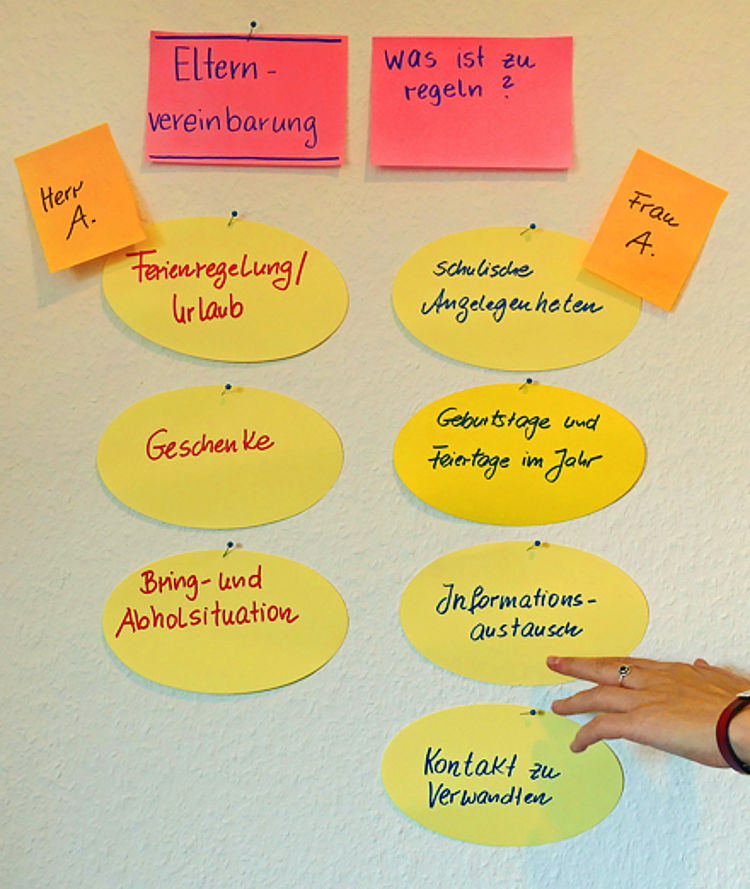 Eltern-
vereinbarung
Was ist zu
regeln?
Herr
A.
Ferienregelung/
Urlaub
Geschenke
Bring- und
Abholsituation
Frau
A.
schulische
Angelegenheiten
Geburtstage und
Feiertage im Jahr
Informations-
austausch
Kontakt zu
Verwandten